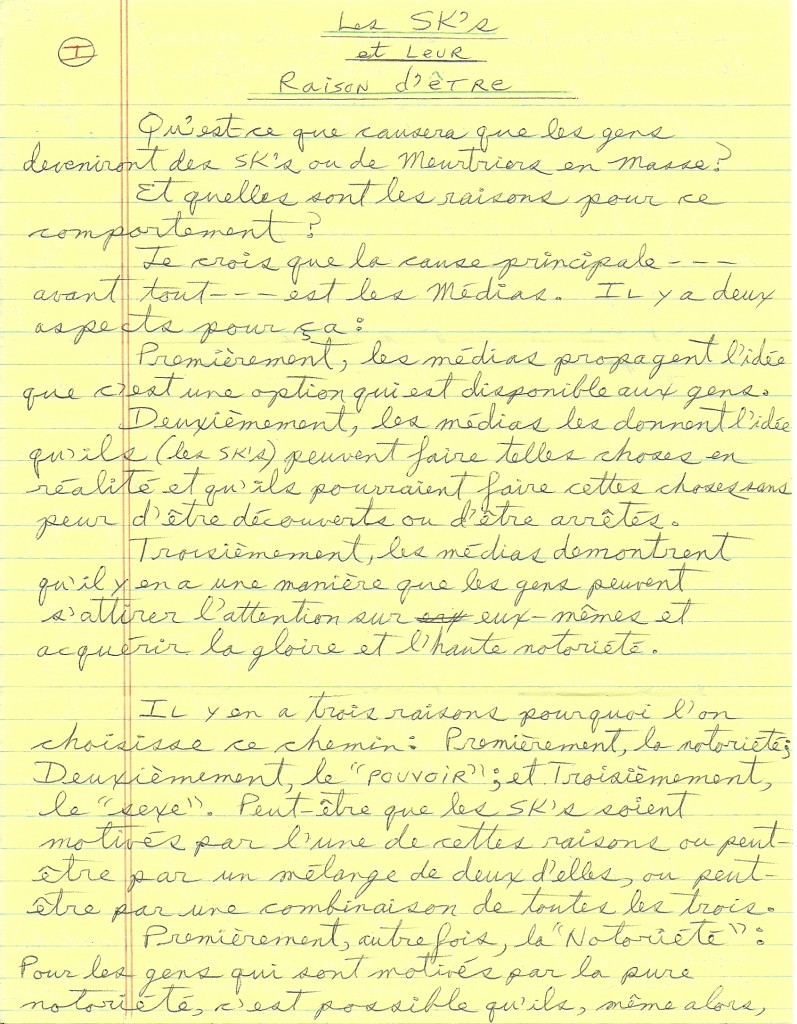 I
Les SK's
et Leur
Raison d'être
Qu'est-ce que causera que les gens
deveniront des SK's ou de Meurtriers en Masse?
Et quelles sont les raisons pour ce
comportement?
Je crois que la cause principale ---
avant tout --- est les Médias. IL y a deux
aspects pour ça:
Premièrement, les médias propagent l'idée
que c'est une option qui est disponible aux gens.
Deuxièmement, les médias les donnent l'idée
qu'ils (les SK's) peuvent faire telles choses en
réalité et qu'ils pourraient faire cettes choses sans
peur d'être découverts ou d'être arrêtés.
Troisièmement, les médias demontrent
qu'il y en a une manière que les gens peuvent
s'attirer l'attention sur eux-mêmes et
acquérir la gloire et l'haute notoriété.
IL y en a trois raisons pourquoi l'on
choisisse ce chemin: Premièrement, la notoriété;
Deuxièmement, le "POUVOIR"; et Troisièmement,
le "sexe". Peut-être que les SK's soient
motivés par l'une de cettes raisons ou peut-
être par un mélange de deux d'elles, ou peut-
être par une combinaison de toutes les trois.
Premièrement, autre fois, la "Notoriété":
Pour les gens qui sont motivés par la pure
notoriété, c'est possible qu'ils, même alors,